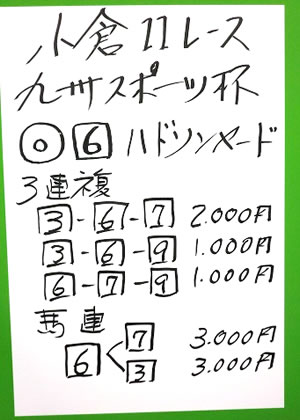 小倉11レース
九州スポーツ杯
◎ 6 ハドソンヤード
3連複
3-6-7 2.000円
3-6-9 1.000円
6-7-9 1.000円
馬連
6<7 3.000円
3 3.000円